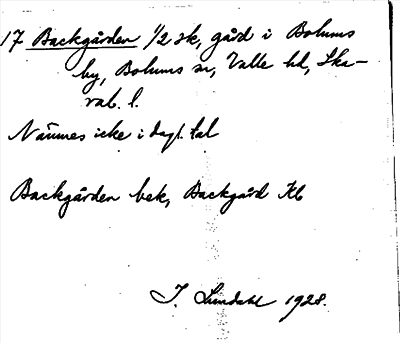 17 Backgården 1/2 sk, gård i Bolums
by, Bolums sn, Valle hd, Ska-
rab. l.
Nämnes icke i dagl. tal
Backgården bek, Backgård Kb
I. Lundahl 1928.